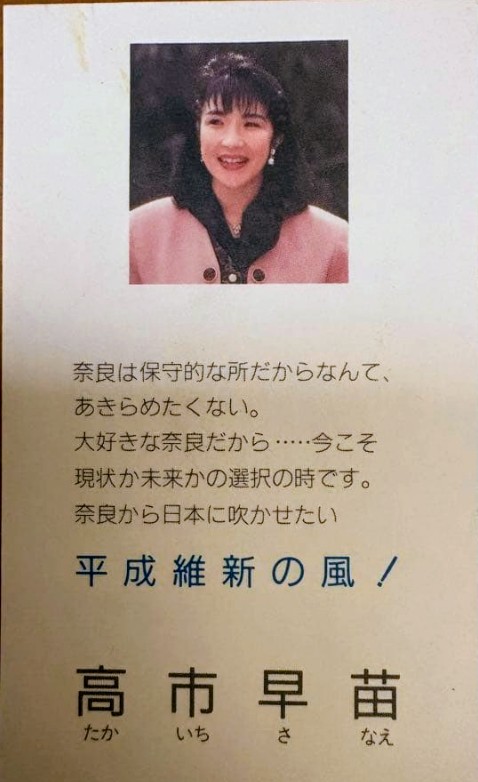 奈良は保守的な所だからなんて、
あきらめたくない。
大好きな奈良だから……今こそ
現状か未来かの選択の時です。
奈良から日本に吹かせたい
平成維新の風！
高市早苗
たか いち さ なえ